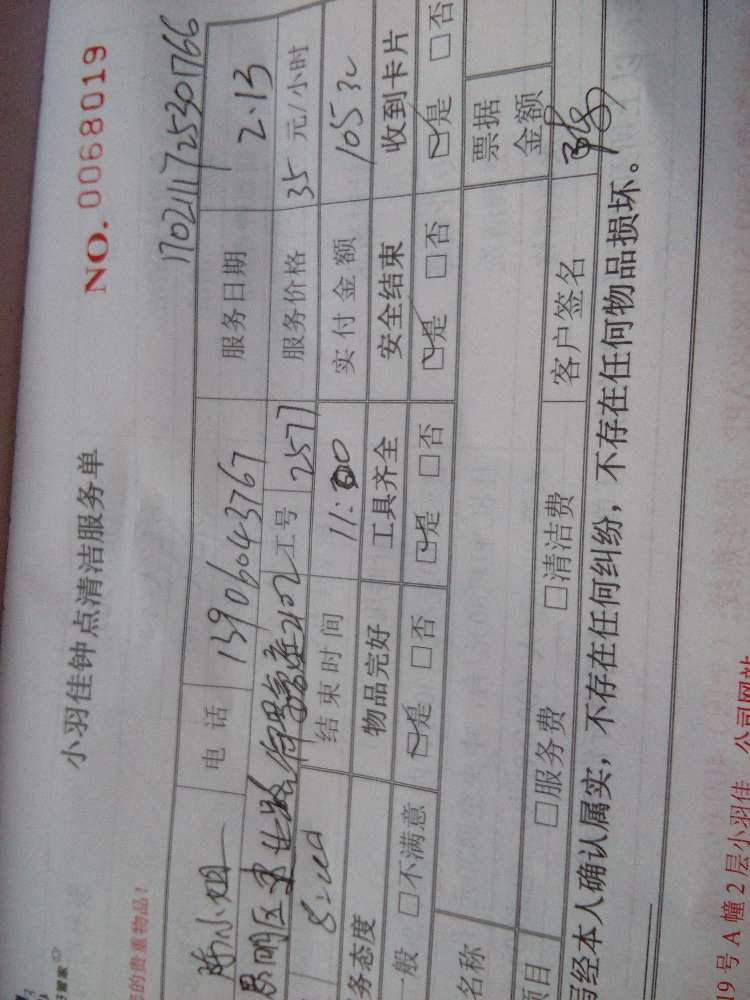 小羽佳钟点清洁服务单
NO. 0068019
您的贵重物品！
1702111725301766
陈小姐 电话 13906043767 服务日期 2.13
思明区 2102 工号 2577 服务价格 35 元/小时
8:00 结束时间 11:00 实付金额 105元
务态度 物品完好 工具齐全 安全结束 收到卡片
一般 □不满意 ☑是 □否 ☑是 □否 ☑是 □否 ☑是 □否
名称 票据金额
项目 □服务费 □清洁费 客户签名
经本人确认属实，不存在任何纠纷，不存在任何物品损坏。
19 号 A 幢 2 层小羽佳 公司网站